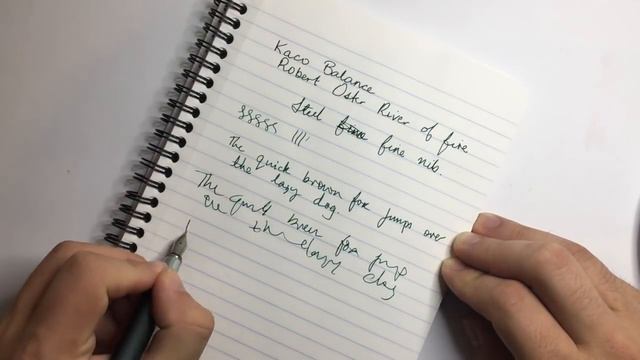 Kaco Balance
Robert Oster River of fire
Steel fine fine nib.
The quick brown fox jumps over
the lazy dog.
The quick brown fox jump
the lazy dog